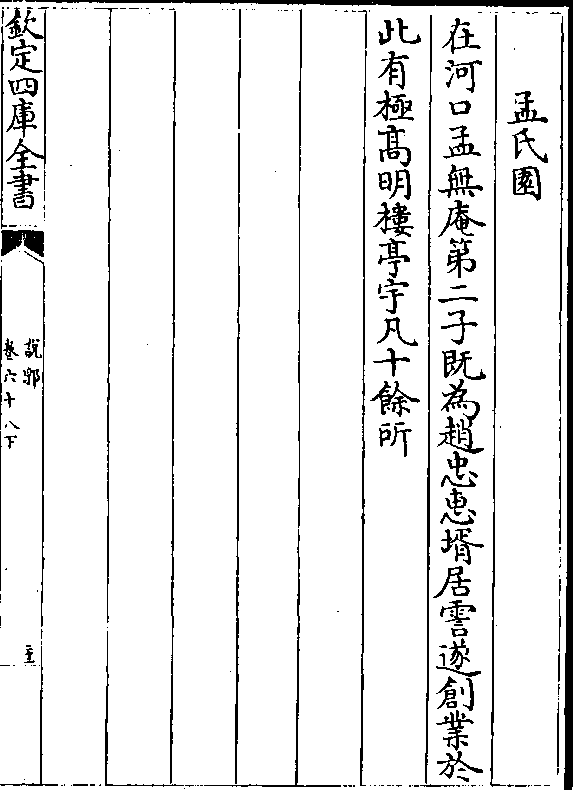 孟氏園
在河口孟無庵第二子既為趙忠惠壻居霅遂創業於
此有極高明樓亭宇凡十餘所
欽定四庫全書
說郛
卷六十八下